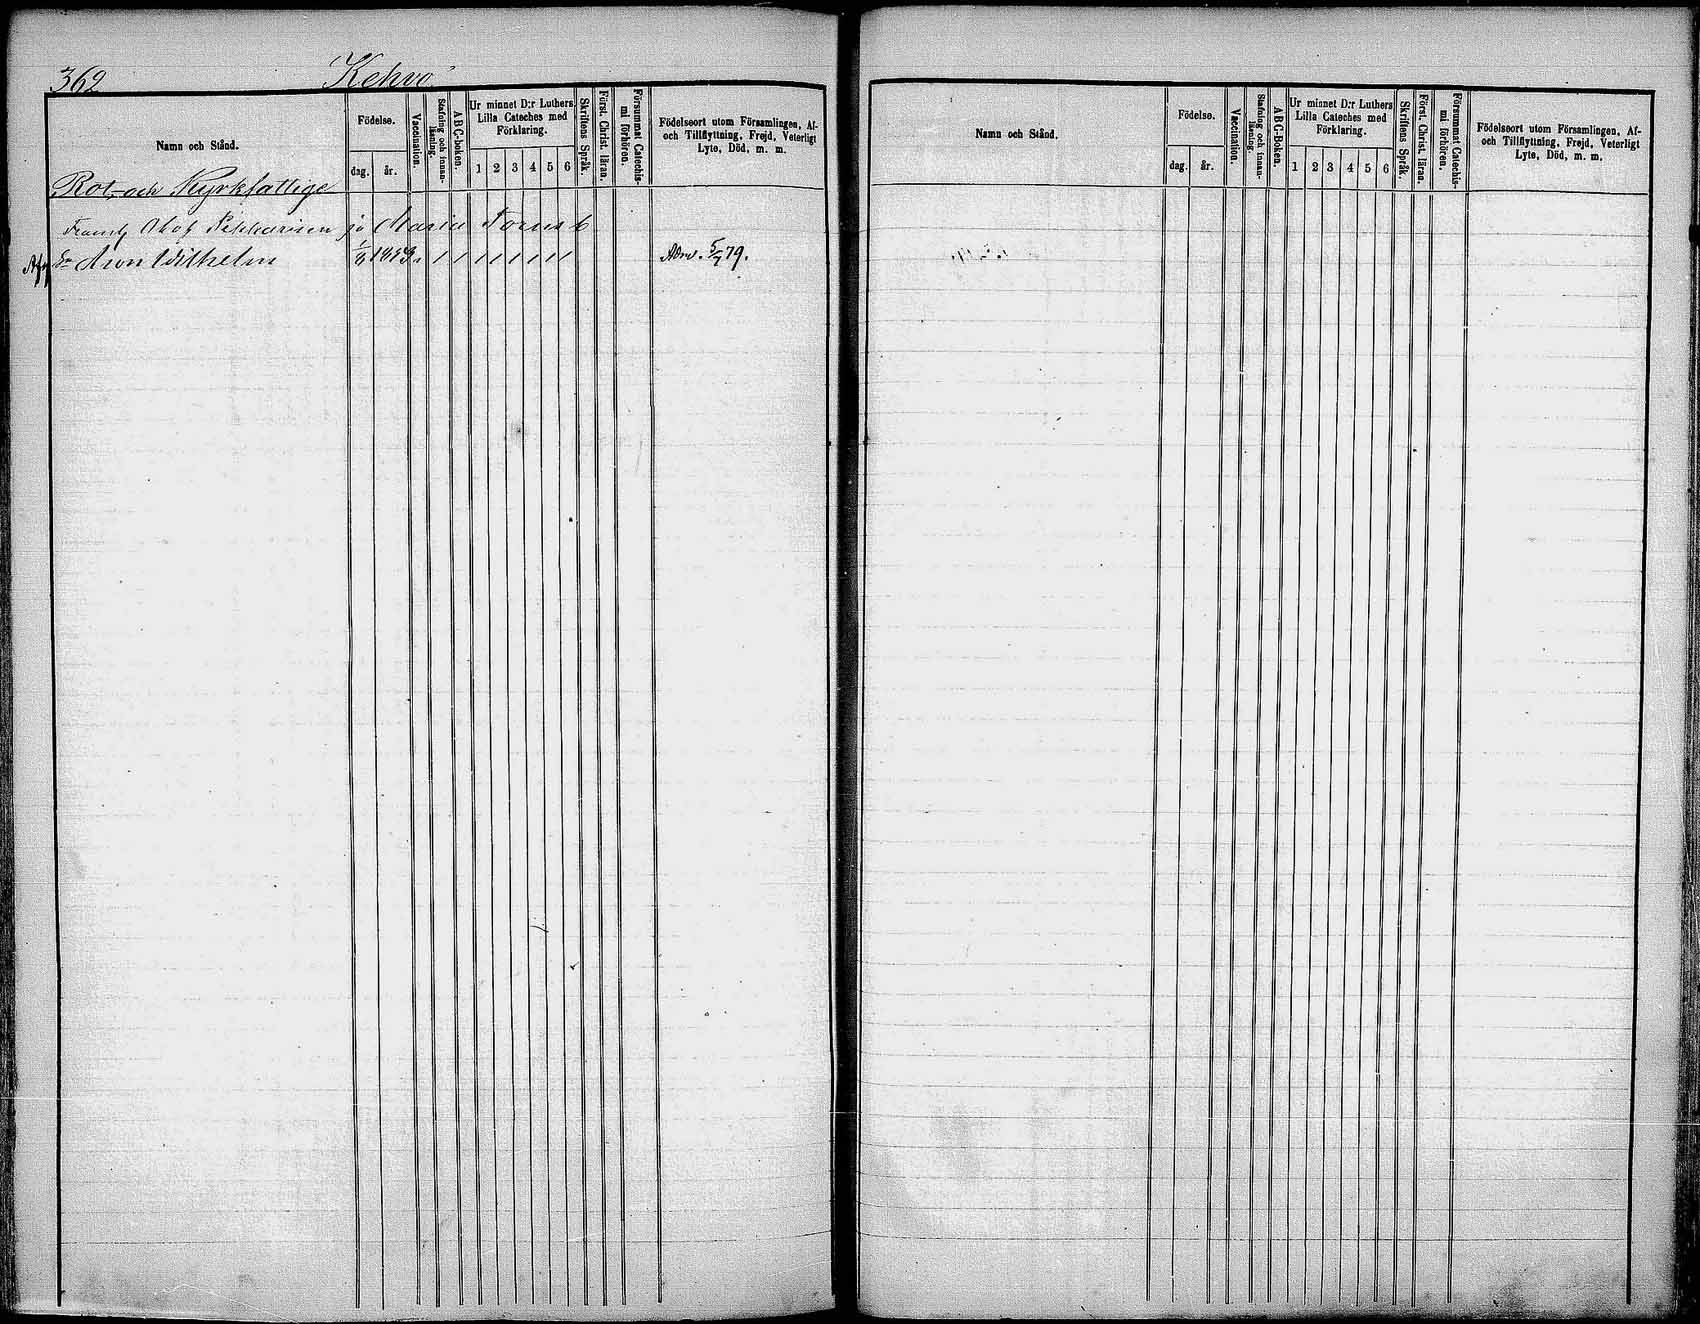 362
Kehvo
Namn och Stånd.
Födelse.
dag. år.
Vaccination.
Stafning och innanläsning.
ABC-boken.
Ur minnet D:r Luthers
Lilla Cateches med
Förklaring.
1 2 3 4 5 6
Skriftens Språk.
Först. Christ. läran.
Försummat Catechismi förhören.
Födelseort utom Församlingen, Af-
och Tillflyttning, Frejd, Veterligt
Lyte, Död, m. m.
Rot- och Kyrkfattige
Olof
Maria
Aron Wilhelm
5/7 79.
Namn och Stånd.
Födelse.
dag. år.
Vaccination.
Stafning och innanläsning.
ABC-Boken.
Ur minnet D:r Luthers
Lilla Cateches med
Förklaring.
1 2 3 4 5 6
Skriftens Språk.
Först. Christ. läran.
Försummat Catechismi förhören.
Födelseort utom Församlingen, Af-
och Tillflyttning, Frejd, Veterligt
Lyte, Död, m. m.